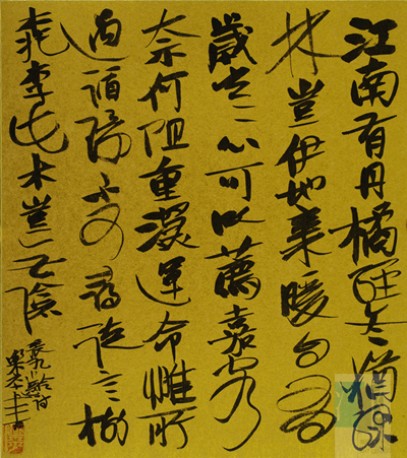 江南有丹橘經冬猶綠
林豈伊地氣暖自有
歲寒心可以薦嘉客
奈何阻重深運命惟所
遇循環不可尋徒言樹
桃李此木豈无陰
張九齡詩